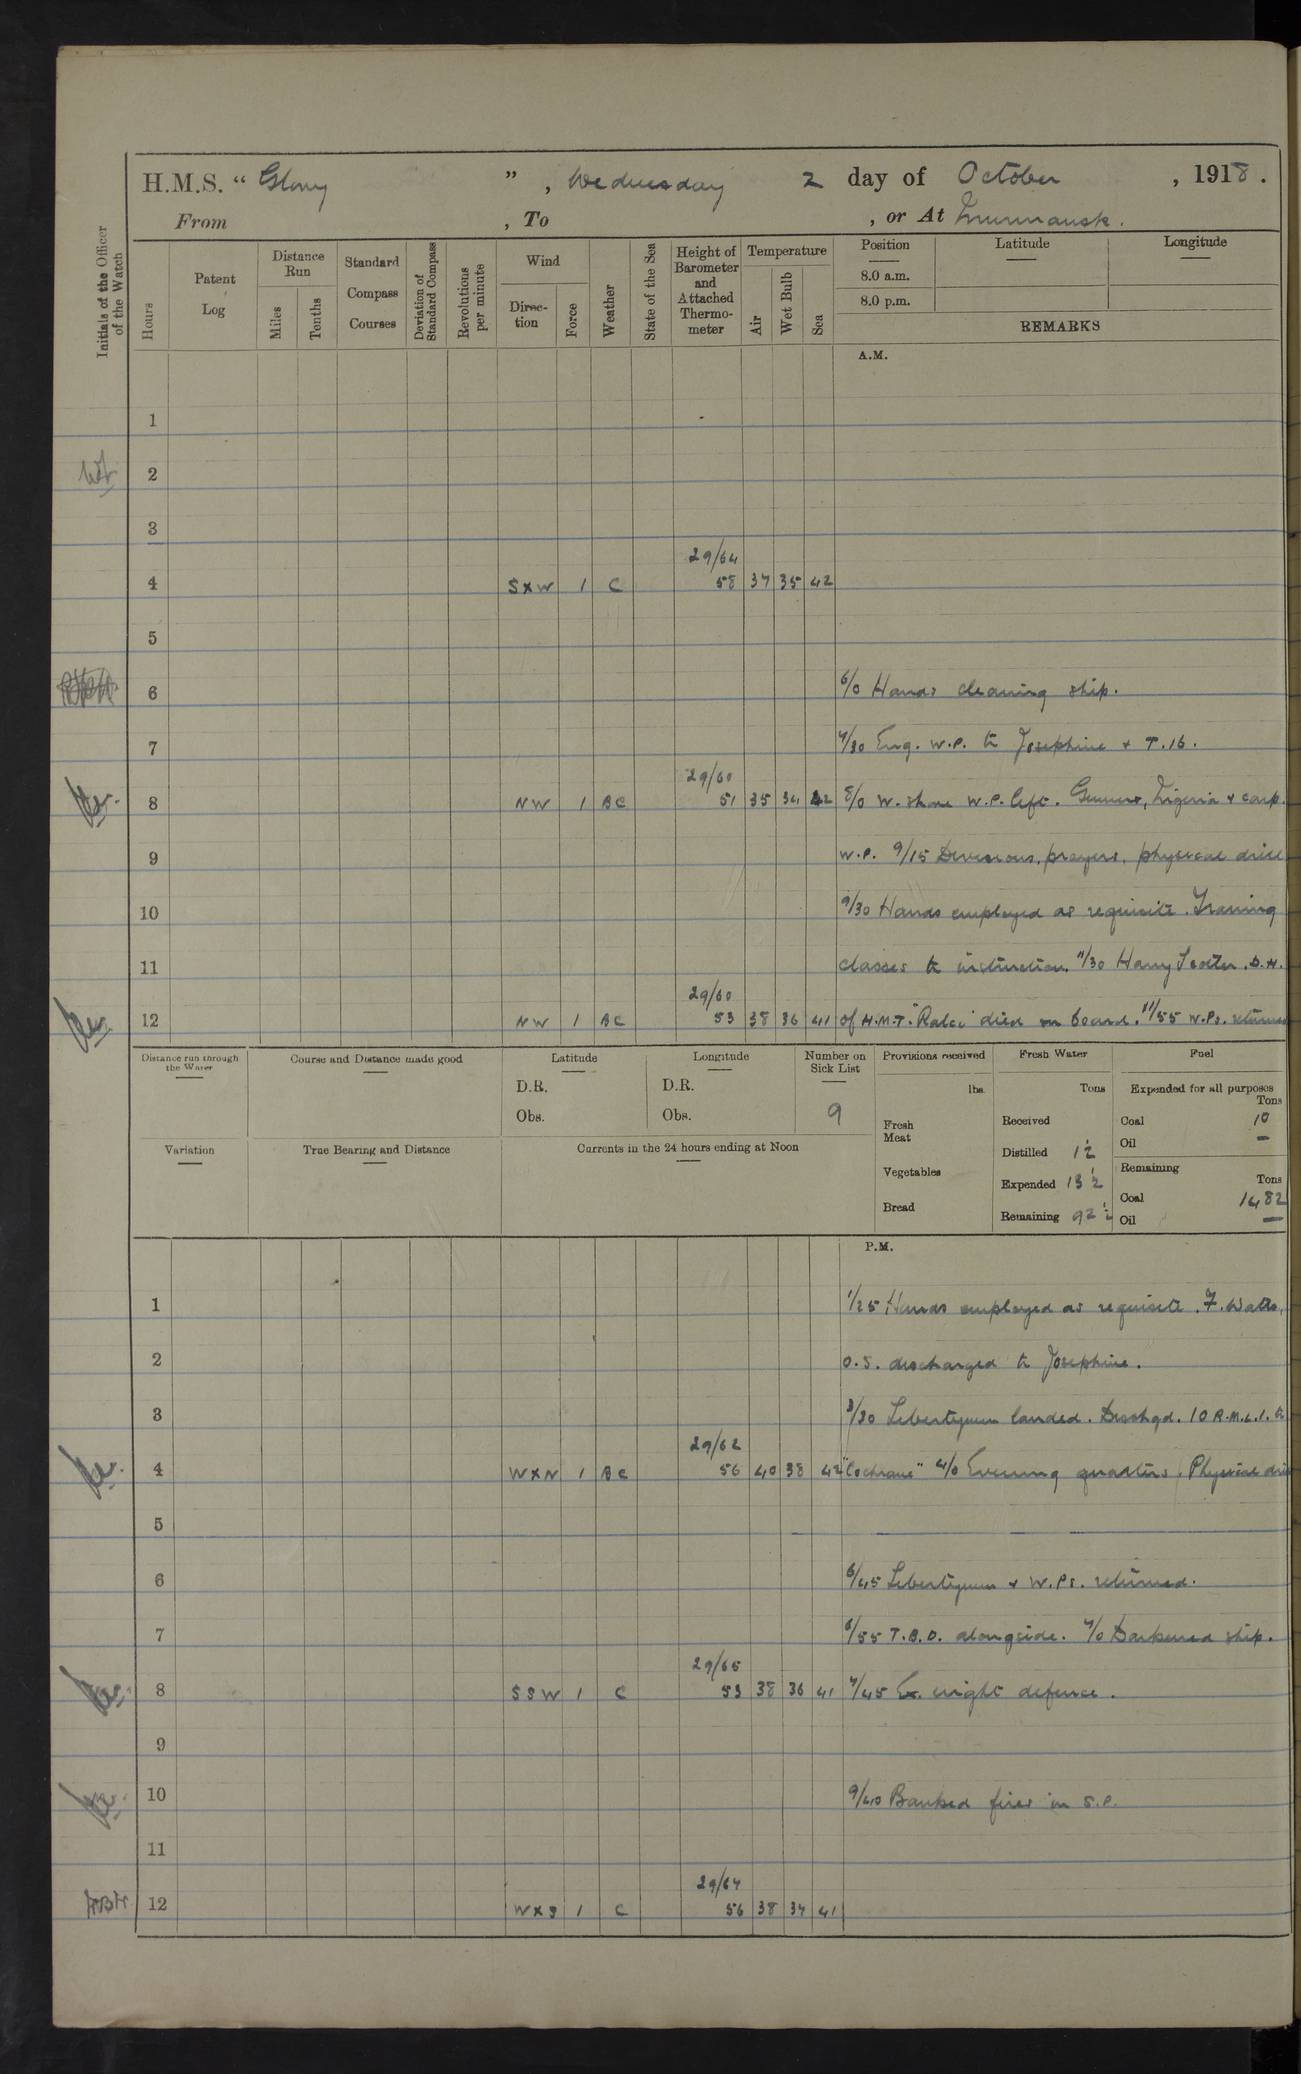 H.M.S. " Glory ", Wednesday 2 day of October, 1918.
From , To , or At Murmansk.
Initials of the Officer of the Watch
Hours
Patent Log
Distance Run
Miles
Tenths
Standard Compass Courses
Deviation of Standard Compass
Revolutions per minute
Wind
Direction
Force
Weather
State of the Sea
Height of Barometer and Attached Thermometer
Temperature
Air
Wet Bulb
Sea
Position
8.0 a.m.
8.0 p.m.
Latitude
Longitude
REMARKS
A.M.
1
2
3
29/64
4 SXW 1 C 58 37 35 42
5
6 6/0 Hands cleaning ship.
7 7/30 Eng. W.P. to Josephine & T.16.
29/60
8 NW 1 BC 51 35 34 42 8/0 W. shore W.P. left. Gunners, Nigeria & carp.
9 W.P. 9/15 Divisions, prayers, physical drill
10 9/30 Hands employed as requisite. Training
11 classes to instruction. 11/30 Harry D.H.
29/60
12 NW 1 BC 53 38 36 41 of H.M.T. died on board. 11/55 W.Ps. returned
Distance run through the Water
Course and Distance made good
Latitude
D.R.
Obs.
Longitude
D.R.
Obs.
Number on Sick List
9
Provisions received
lbs.
Fresh Meat
Vegetables
Bread
Fresh Water
Tons
Received
Distilled 1½
Expended 13½
Remaining 92½
Fuel
Expended for all purposes
Tons
Coal 10
Oil —
Remaining
Tons
Coal 1482
Oil —
Variation
True Bearing and Distance
Currents in the 24 hours ending at Noon
P.M.
1 1/25 Hands employed as requisite. F. Watts,
2 O.S. discharged to Josephine.
3 3/30 Libertymen landed. Dischgd. 10 R.M.L.I. to
29/62
4 WXN 1 BC 56 40 38 42 "Cochrane" 4/0 Evening quarters. Physical drill
5
6 6/45 Libertymen & W.Ps. returned.
7 6/55 T.B.D. alongside. 7/0 Darkened ship.
29/65
8 SSW 1 C 53 38 36 41 7/45 Ex. night defence.
9
10 9/40 Banked fires in S.P.
11
29/64
12 WXS 1 C 56 38 37 41